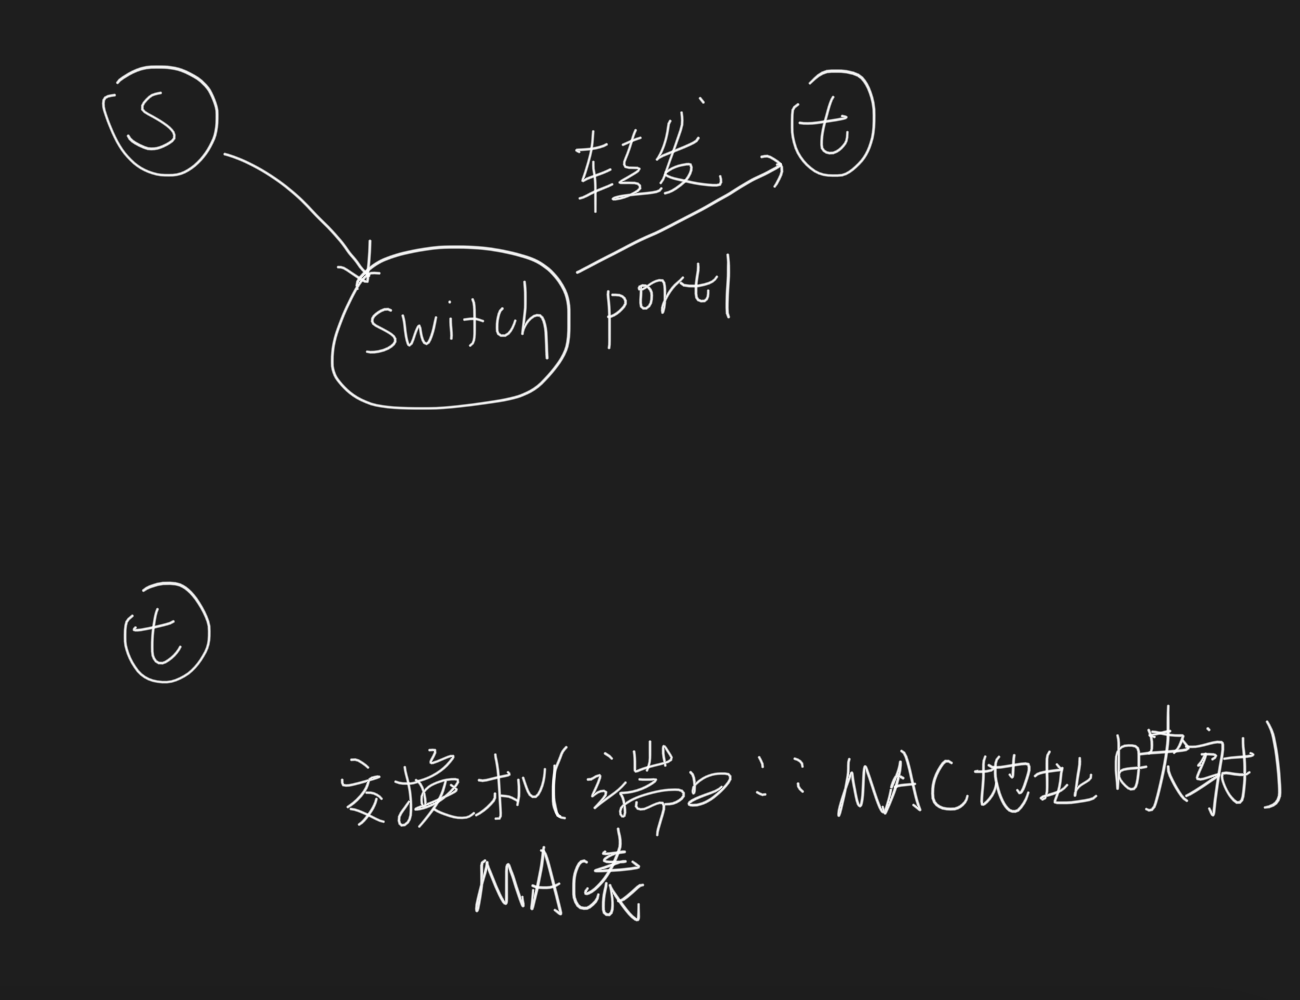 S
t
转发
switch
port1
t
交换机(端口::MAC地址映射)
MAC表